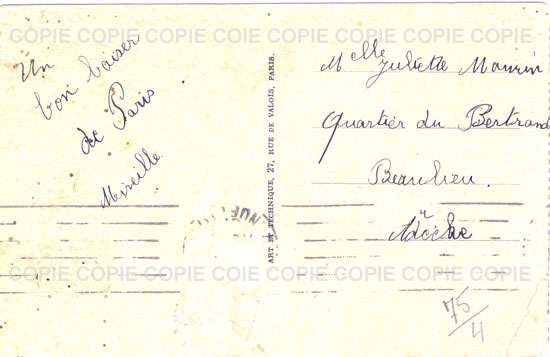 Un
bon baiser
de Paris
Mireille
ART ET TECHNIQUE, 27, RUE DE VALOIS, PARIS.
Melle Juliette Maurin
Quartier du Bertrand
Beaulieu.
Ardèche
75/4
COPIE COPIE COPIE COIE COPIE COPIE COPIE COPIE
COPIE COPIE COPIE COIE COPIE COPIE COPIE COPIE